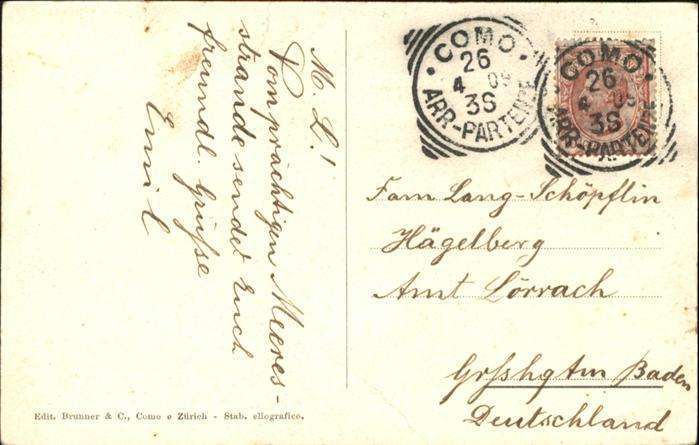 M. L!
Vom prächtigen Meeres-
strande sendet Euch
freundl. Grüße
Emil
COMO
26
4 09
3S
ARR-PARTENZE
COMO
26
4 09
3S
ARR-PARTENZE
Fam Lang-Schöpflin
Hägelberg
Amt Lörrach
Grßhgtm Baden
Deutschland
Edit. Brunner & C., Como e Zürich - Stab. eliografico.